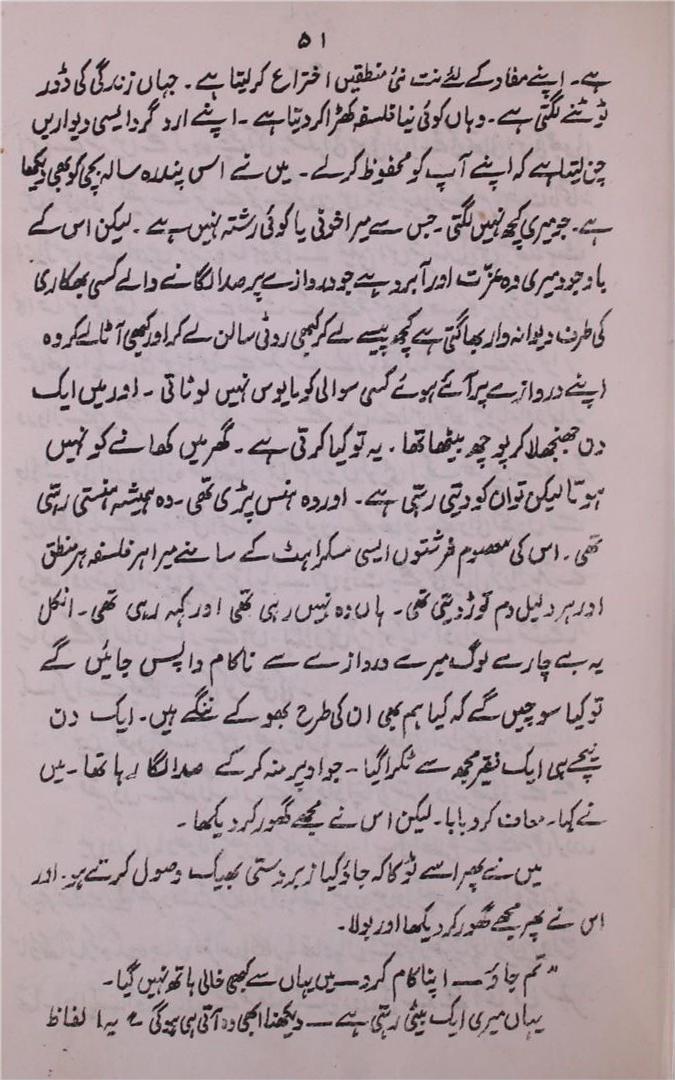 ۵۱
ہے۔ اپنے مفاد کے لئے نت نئی منطقیں اختراع کر لیتا ہے۔ جہاں زندگی کی ڈور
ٹوٹنے لگتی ہے۔ وہاں کوئی نیا فلسفہ کھڑا کر دیتا ہے۔ اپنے ارد گرد ایسی دیواریں
چن لیتا ہے کہ اپنے آپ کو محفوظ کر لے۔ میں نے اس پندرہ سالہ بچی کو بھی دیکھا
ہے۔ جو میری کچھ نہیں لگتی۔ جس سے میرا خونی یا کوئی رشتہ نہیں ہے۔ لیکن اس کے
باوجود میری وہ عزّت اور آبرو ہے جو دروازے پر صدا لگانے والے کسی بھکاری
کی طرف دیوانہ وار بھاگتی ہے کچھ پیسے لے کر کبھی روٹی سالن لے کر اور کبھی آٹا لے کر وہ
اپنے دروازے پر آئے ہوئے کسی سوالی کو مایوس نہیں لوٹاتی۔ اور میں ایک
دن جھنجھلا کر پوچھ بیٹھا تھا۔ یہ تو کیا کرتی ہے۔ گھر میں کھانے کو نہیں
ہوتا لیکن تو ان کو دیتی رہتی ہے۔ اور وہ ہنس پڑی تھی۔ وہ ہمیشہ ہنستی رہتی
تھی۔ اس کی معصوم فرشتوں ایسی مسکراہٹ کے سامنے میرا ہر فلسفہ ہر منطق
اور ہر دلیل دم توڑ دیتی تھی۔ ہاں وہ ہنس رہی تھی اور کہہ رہی تھی۔ انکل
یہ بے چارے لوگ میرے دروازے سے ناکام واپس جائیں گے
تو کیا سوچیں گے کہ کیا ہم بھی ان کی طرح بھوکے ننگے ہیں۔ ایک دن
نیچے ہی ایک فقیر مجھ سے ٹکرا گیا۔ جو اوپر منہ کر کے صدا لگا رہا تھا۔ میں
نے کہا۔ معاف کرو بابا۔ لیکن اس نے مجھے گھور کر دیکھا۔
میں نے پھر اسے ٹوکا کہ جاؤ کیا زبردستی بھیک وصول کرتے ہو۔ اور
اس نے پھر مجھے گھور کر دیکھا اور بولا۔
"تم جاؤ — اپنا کام کرو — میں یہاں سے کبھی خالی ہاتھ نہیں گیا۔
یہاں میری ایک بیٹی رہتی ہے — دیکھنا ابھی وہ آتی ہی ہوگی" یہ الفاظ